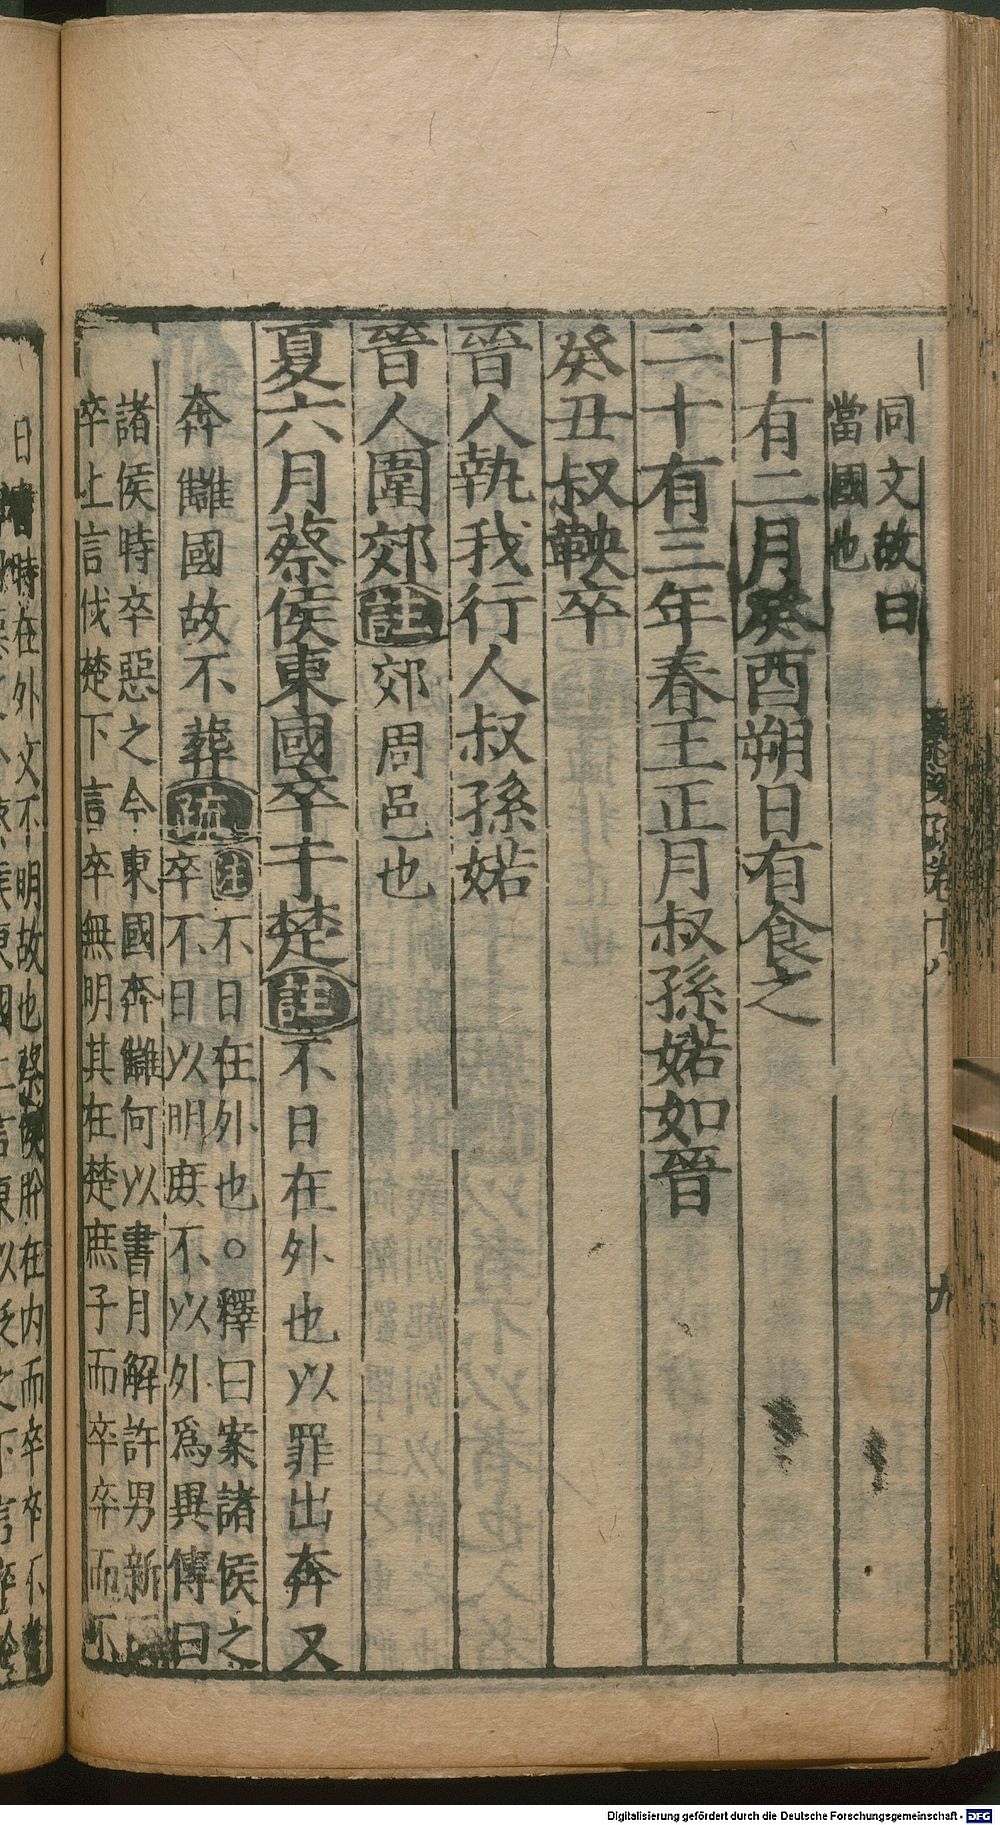 同文故曰
當國也
十有二月癸酉朔日有食之
二十有三年春王正月叔孫婼如晉
癸丑叔鞅卒
晉人執我行人叔孫婼
晉人圍郊註郊周邑也
夏六月蔡侯東國卒于楚註不日在外也以罪出奔又
奔讎國故不葬疏
註不日在外也○釋曰案諸侯之
卒不日以明庶不以外爲異傳曰
諸侯時卒惡之今東國奔讎何以書月解許男新
卒上言伐楚下言卒無明其在楚庶子而卒卒而不
時在外文不明故也蔡侯肸在内而卒卒不
九
Digitalisierung gefördert durch die Deutsche Forschungsgemeinschaft - DFG